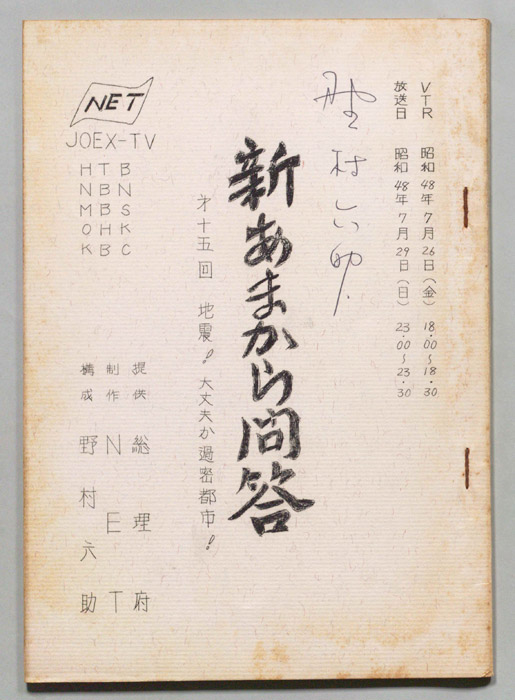 VTR 昭和48年7月26日(金) 18・00〜18・30
放送日 昭和48年7月29日(日) 23・00〜23・30
野村六助
新あまから問答
第十五回 地震!大丈夫か過密都市!
NET
JOEX-TV
HTB
NBN
MBS
OHK
KBC
提供 総理府
制作 NET
構成 野村六助